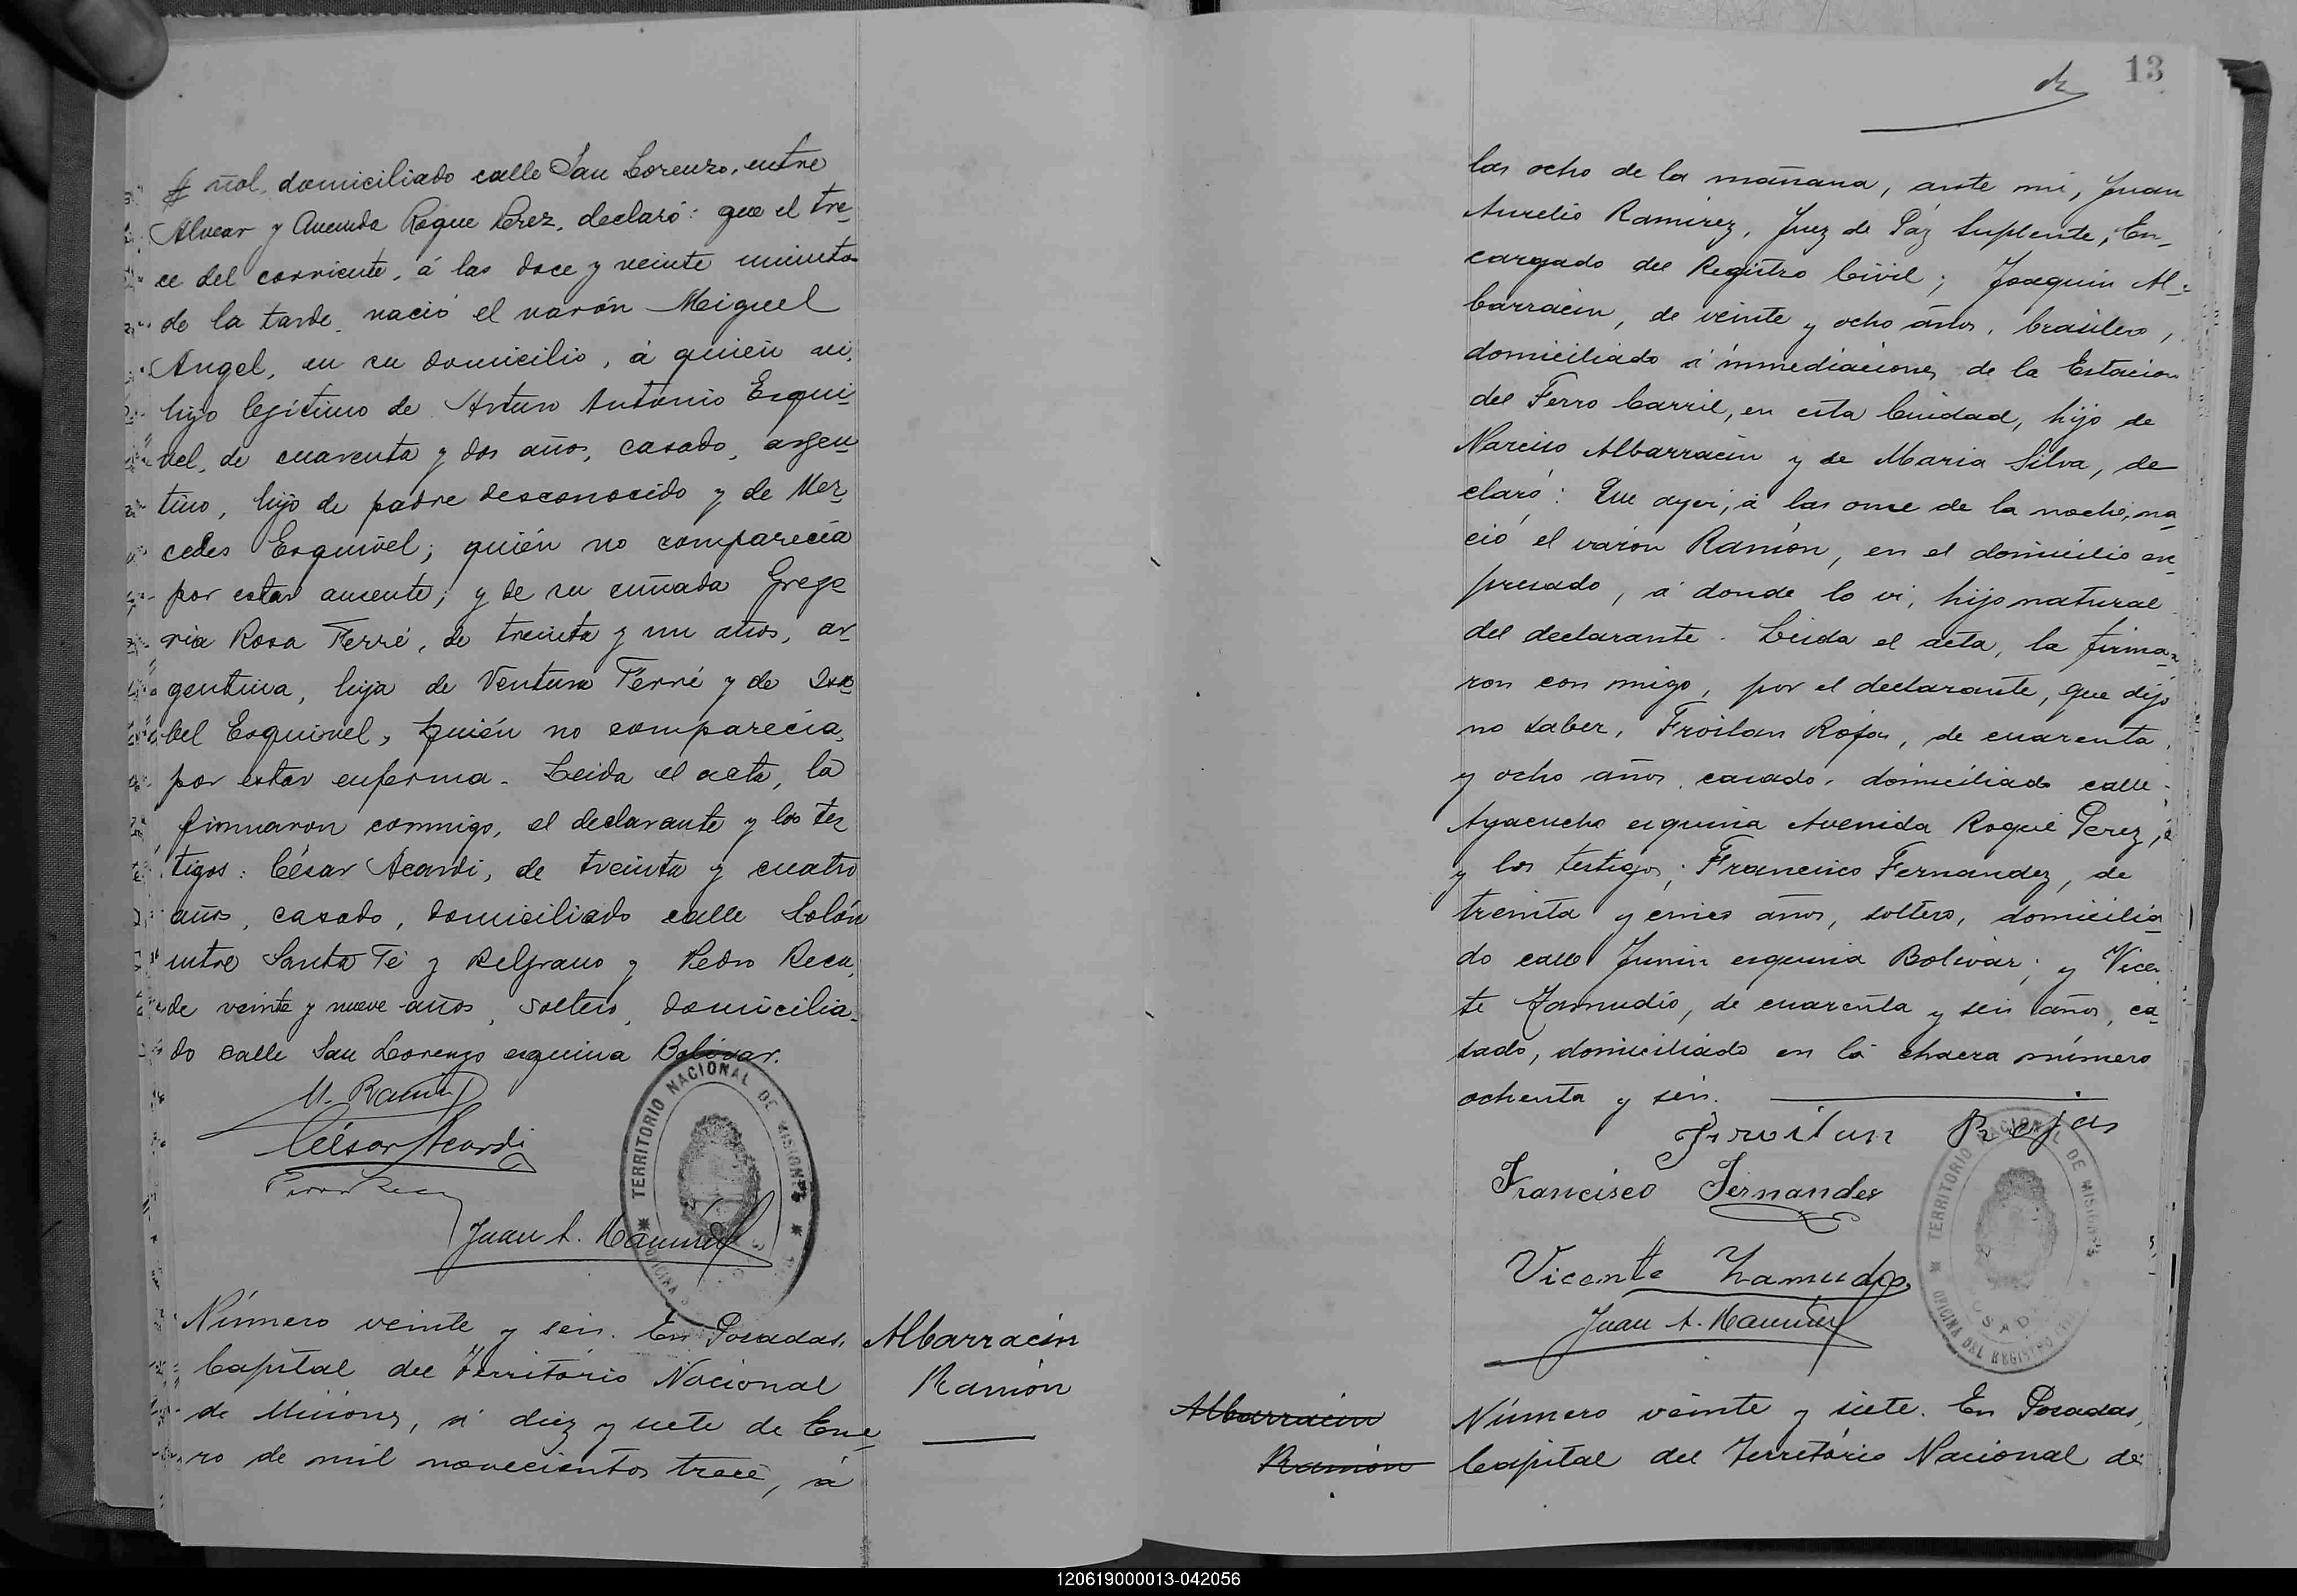 ñol, domiciliado calle San Lorenzo, entre
Alvear y Avenida Roque Perez, declaró: que el tre-
ce del corriente, á las doce y veinte minutos
de la tarde, nació el varón Miguel
Angel, en su domicilio, á quien vi,
hijo legitimo de Arturo Antonio Esqui-
vel, de cuarenta y dos años, casado, argen-
tino, hijo de padre desconocido y de Mer-
cedes Esquivel; quién no comparecía
por estar ausente; y de su cuñada Grego
ria Rosa Ferré, de treinta y un años, ar-
gentina, hija de Ventura Ferré y de Isa-
bel Esquivel, quién no comparecía,
por estar enferma. Leida el acta, la
firmaron conmigo, el declarante y los tes
tigos: César Acardi, de treinta y cuatro
años, casado, domiciliado calle Colón
entre Santa Fé y Belgrano y Pedro Reca,
de veinte y nueve años, soltero, domicilia-
do calle San Lorenzo esquina Bolivar.
César Acardi
Juan A. Ramirez
TERRITORIO NACIONAL DE MISIONES
Número veinte y seis. En Posadas,
Capital del Territorio Nacional
de Misiones, á diez y siete de Ene-
ro de mil novecientos trece, á
Albarracin
Ramón
13
las ocho de la mañana, ante mi, Juan
Aurelio Ramirez, Juez de Páz Suplente, En-
cargado del Registro Civil; Joaquin Al-
barracin, de veinte y ocho años, brasilero,
domiciliado á inmediaciones de la Estacion
del Ferro Carril, en esta Ciudad, hijo de
Narciso Albarracin y de Maria Silva, de
claró: Que ayer, á las once de la noche, na-
ció el varon Ramón, en el domicilio ex-
presado, á donde lo vi, hijo natural
del declarante. Leida el acta, la firma-
ron con migo, por el declarante, que dijo
no saber, Froilan Rojas, de cuarenta
y ocho años, casado, domiciliado calle
Ayacucho esquina Avenida Roque Perez,
y los testigos; Francisco Fernandez, de
treinta y cinco años, soltero, domicilia-
do calle Junin esquina Bolivar; y Vicen
te Zamudio, de cuarenta y seis años, ca-
sado, domiciliado en la chacra número
ochenta y seis.
Froilan Rojas
Francisco Fernandez
Vicente Zamudio
Juan A. Ramirez
TERRITORIO NACIONAL DE MISIONES
OFICINA DEL REGISTRO
Albarracin
Ramón
Número veinte y siete. En Posadas,
Capital del Territorio Nacional de
120619000013-042056